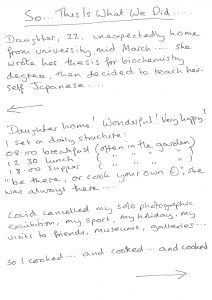 So... This Is What We Did.....
Daughter, 22, unexpectedly home
from university, mid March ..... she
wrote her thesis for biochemistry
degree, then decided to teach her-
self Japanese.....
Daughter home! Wonderful! Very happy!
I set a daily structure:
08.00 breakfast (often in the garden)
12 30 lunch ( " " " " )
18.00 supper ( " " " " )
"be there, or cook your own ☺", she
was always there....
Covid cancelled my solo photographic
exhibition, my sport, my holiday, my
visits to friends, museums, galleries....
So I cooked... and cooked... and cooked